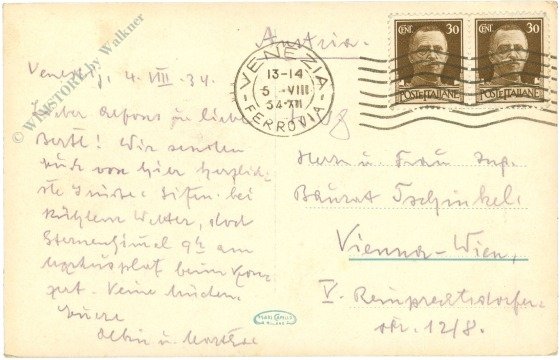 © WINSTORY by Walkner
Austria.
VENEZIA
13-14
5 -VIII
34-XII
FERROVIA
CENT. 30
POSTE ITALIANE
CENT. 30
POSTE ITALIANE
Venedig, 4. VIII. 34.
Lieber Alfons u. liebe
Bertl! Wir senden
Euch von hier herzlich-
ste Grüsse. Sitzen bei
kühlem Wetter, doch
Sternenhimmel 9h am
Markusplatz beim Kon-
zert. Keine Mücken.
Eure
Albin u.
Herrn u. Frau Ing.
Baurat Tschinkel
Vienna-Wien,
V. Reinprechtsdorfer-
str. 12/8.